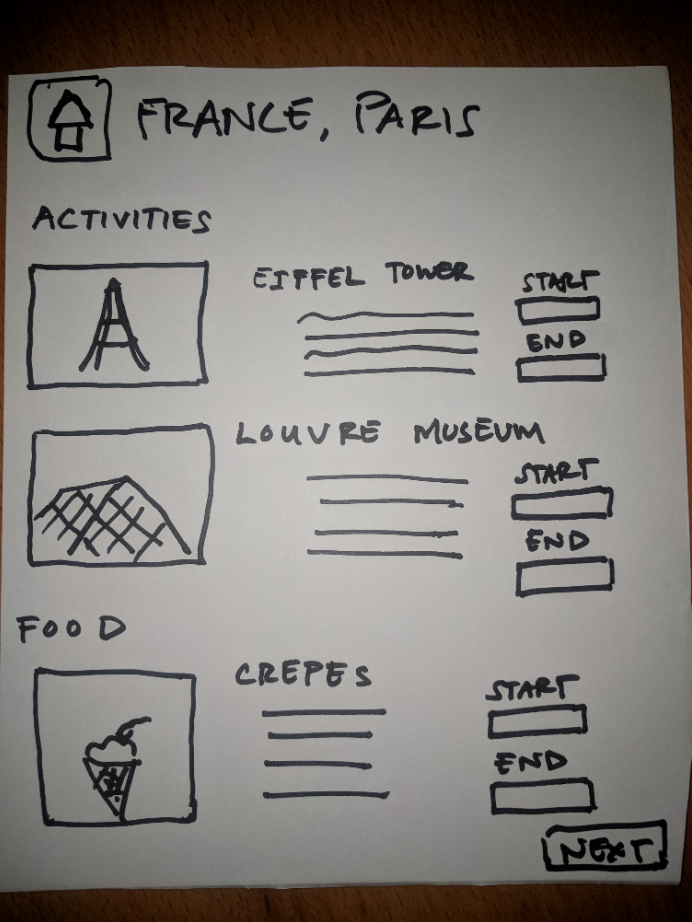 FRANCE, PARIS
ACTIVITIES
EIFFEL TOWER
START
END
LOUVRE MUSEUM
START
END
FOOD
CREPES
START
END
NEXT